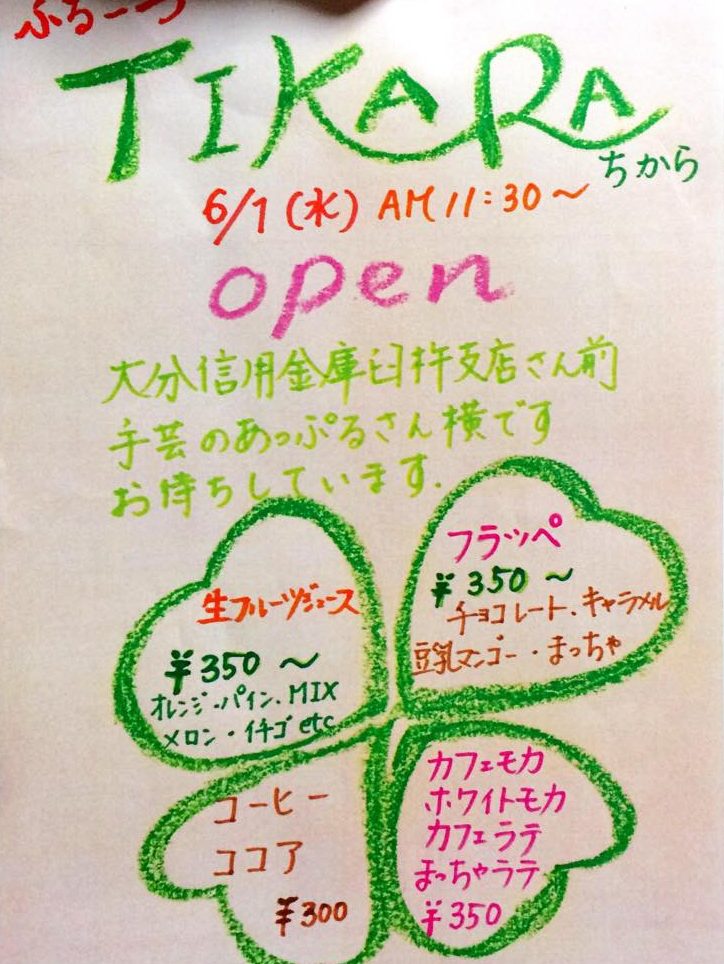 ふるーつ
TIKARA
ちから
6/1(水) AM 11:30〜
open
大分信用金庫臼杵支店さん前
手芸のあっぷるさん横です
お待ちしています.
生フルーツジュース
¥350 〜
オレンジ・パイン・MIX
メロン・イチゴ etc
フラッペ
¥350 〜
チョコレート・キャラメル
豆乳マンゴー・まっちゃ
コーヒー
ココア
¥300
カフェモカ
ホワイトモカ
カフェラテ
まっちゃラテ
¥350